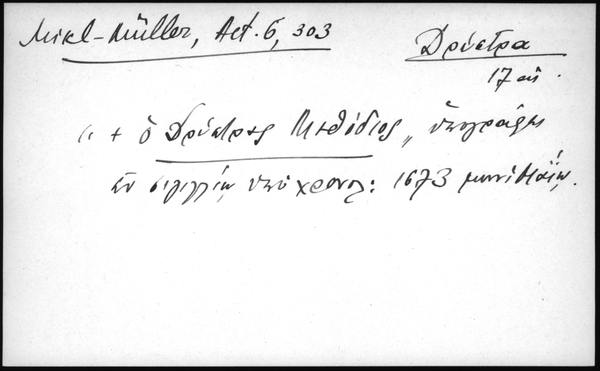 Mikl-Müller, Act. 6, 303
Δρύστρα
17 αἰ.
"+ ὁ Δρύστρας Μεθόδιος" ὑπογράφει
ἐν σιγιλλίῳ ὑπὸ χρονολ: 1673 μηνὶ Μαΐῳ.